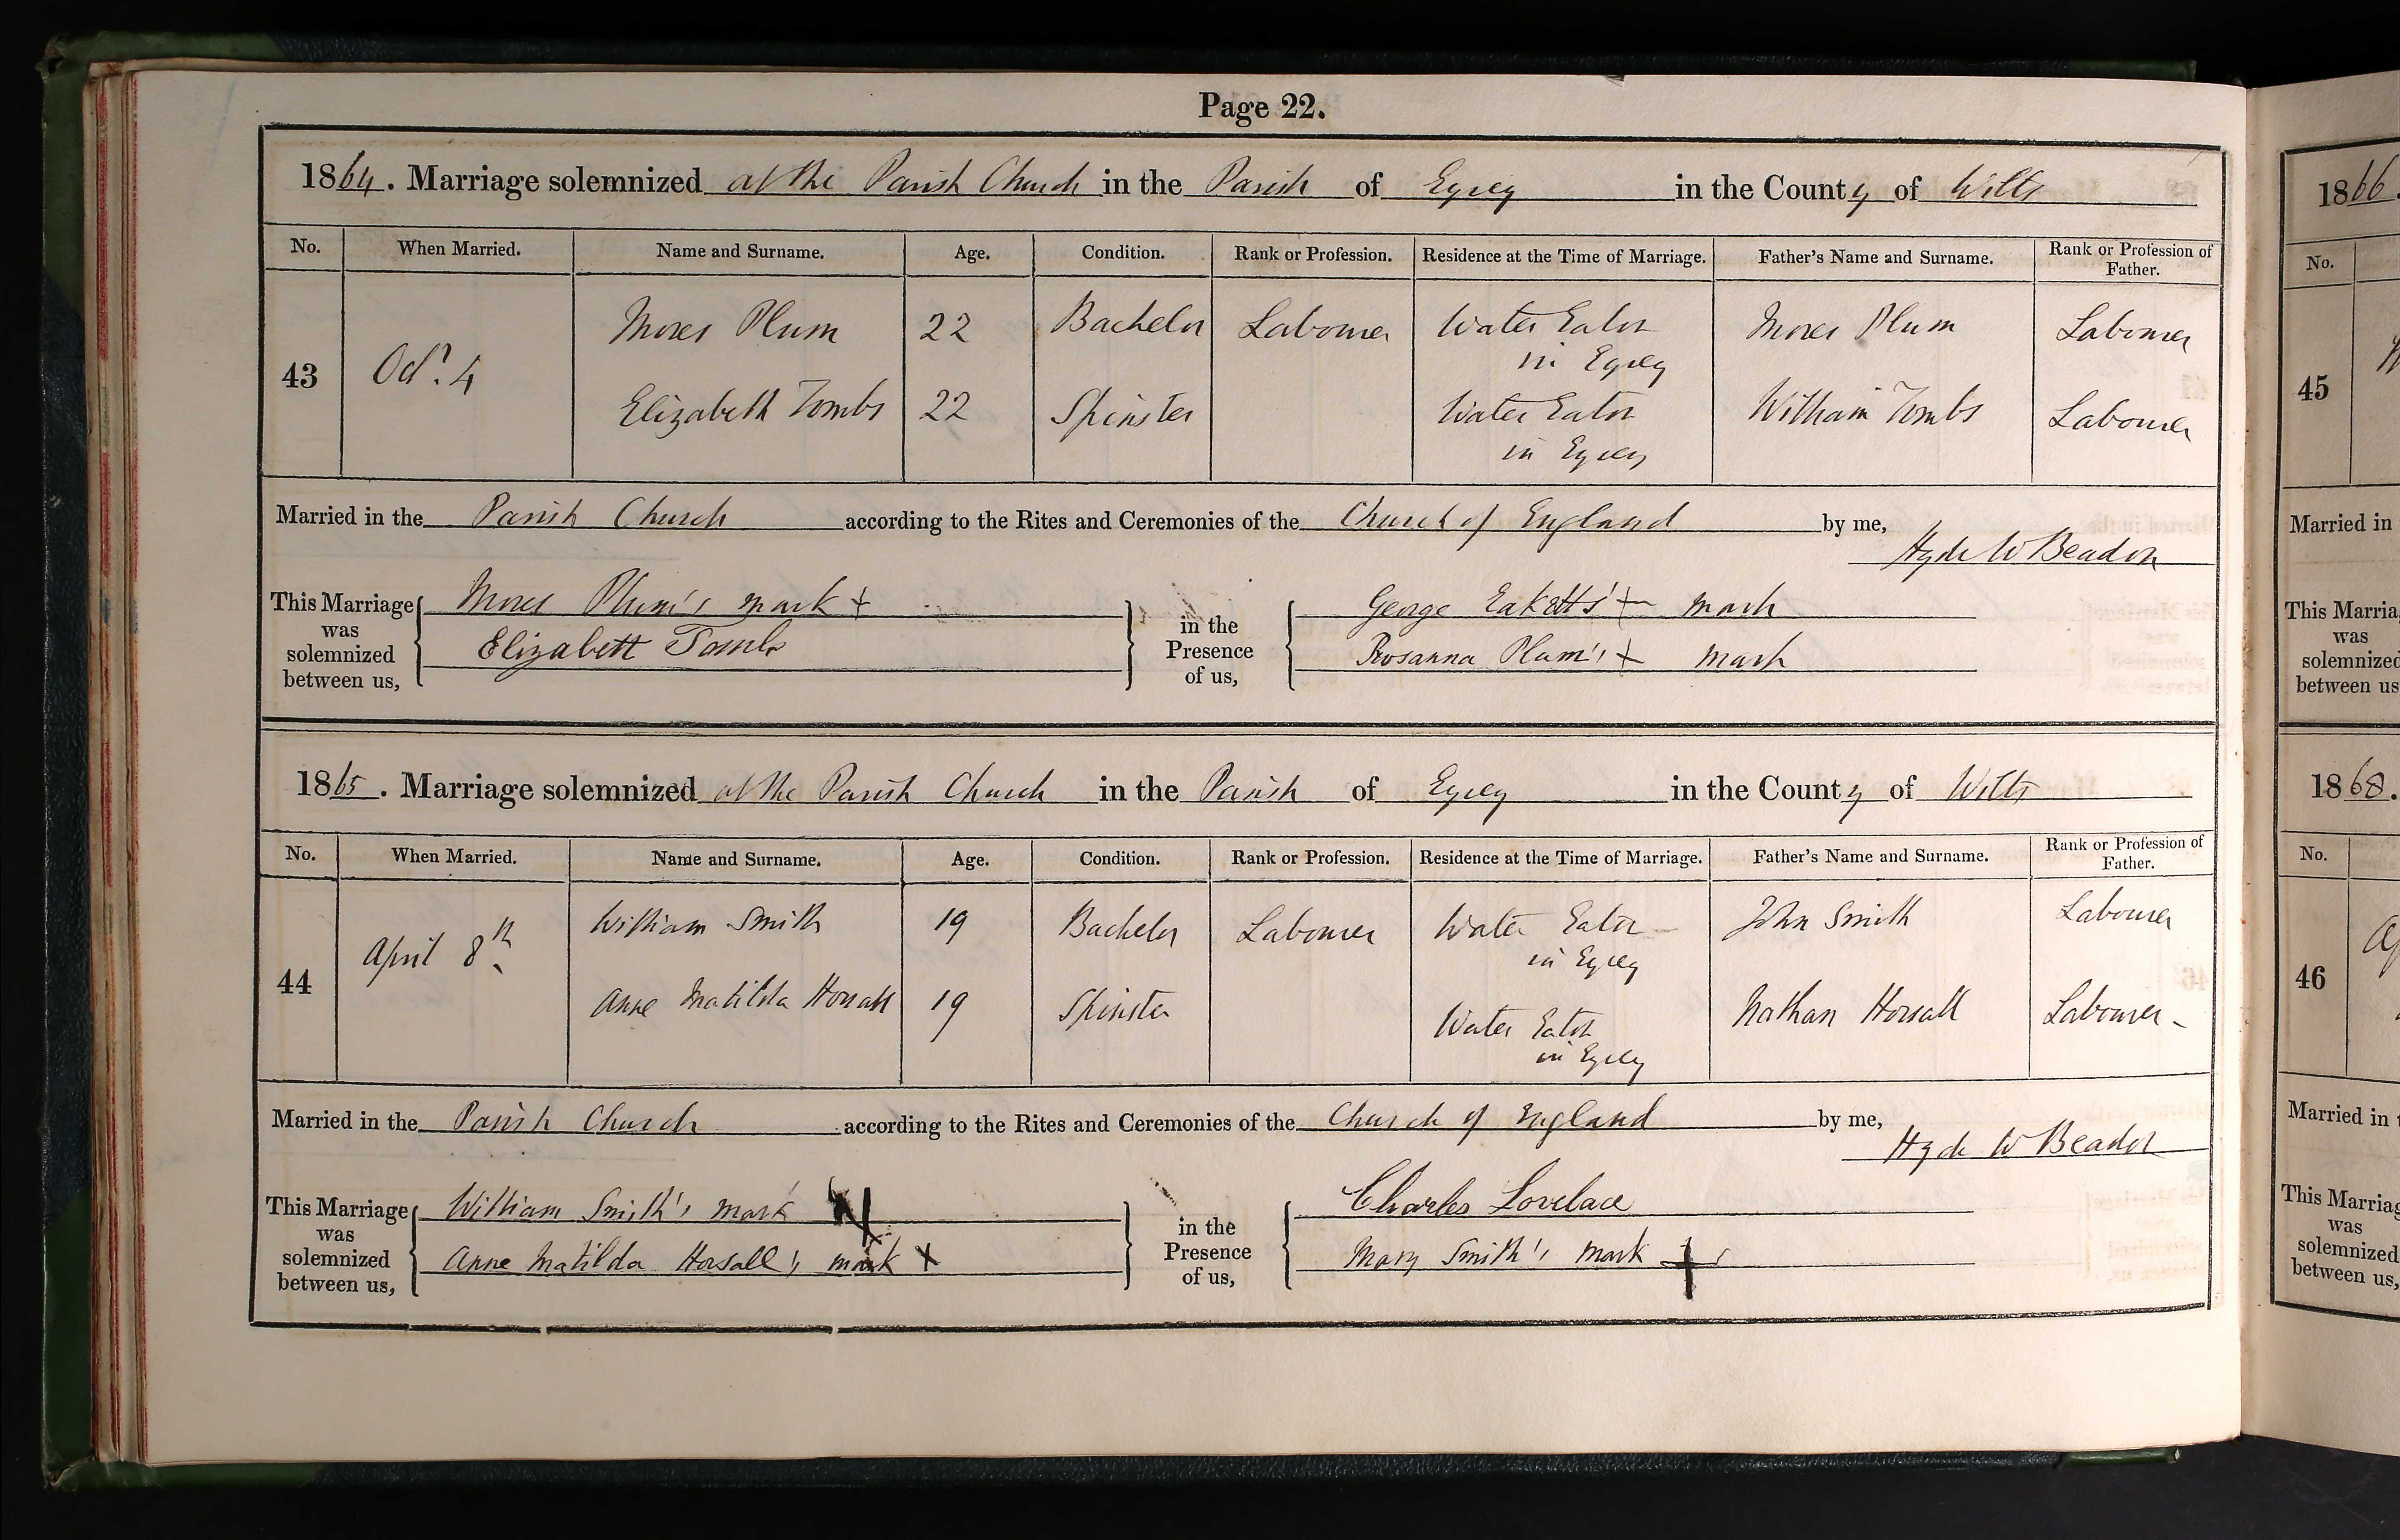 Page 22.
1864. Marriage solemnized at the Parish Church in the Parish of Eysey in the County of Wilts
No. When Married. Name and Surname. Age. Condition. Rank or Profession. Residence at the Time of Marriage. Father's Name and Surname. Rank or Profession of Father.
43 Octr. 4 Moses Plum 22 Bachelor Labourer Water Eaton in Eysey Moses Plum Labourer
Elizabeth Tombs 22 Spinster Water Eaton in Eysey William Tombs Labourer
Married in the Parish Church according to the Rites and Ceremonies of the Church of England by me,
Hyde W Beadon
This Marriage was solemnized between us, Moses Plum's mark +
Elizabett Tombs
in the Presence of us, George Eaketts' + mark
Rosanna Plum's + mark
1865. Marriage solemnized at the Parish Church in the Parish of Eysey in the County of Wilts
No. When Married. Name and Surname. Age. Condition. Rank or Profession. Residence at the Time of Marriage. Father's Name and Surname. Rank or Profession of Father.
44 April 8th William Smith 19 Bachelor Labourer Water Eaton in Eysey John Smith Labourer
Anne Matilda Horsall 19 Spinster Water Eaton in Eysey Nathan Horsall Labourer
Married in the Parish Church according to the Rites and Ceremonies of the Church of England by me,
Hyde W Beadon
This Marriage was solemnized between us, William Smith's mark
Anne Matilda Horsall's mark X
in the Presence of us, Charles Lovelace
Mary Smith's mark +
1866.
No.
45
Married in
This Marria
was
solemnized
between us
1868.
No.
46
Married in
This Marriag
was
solemnized
between us,